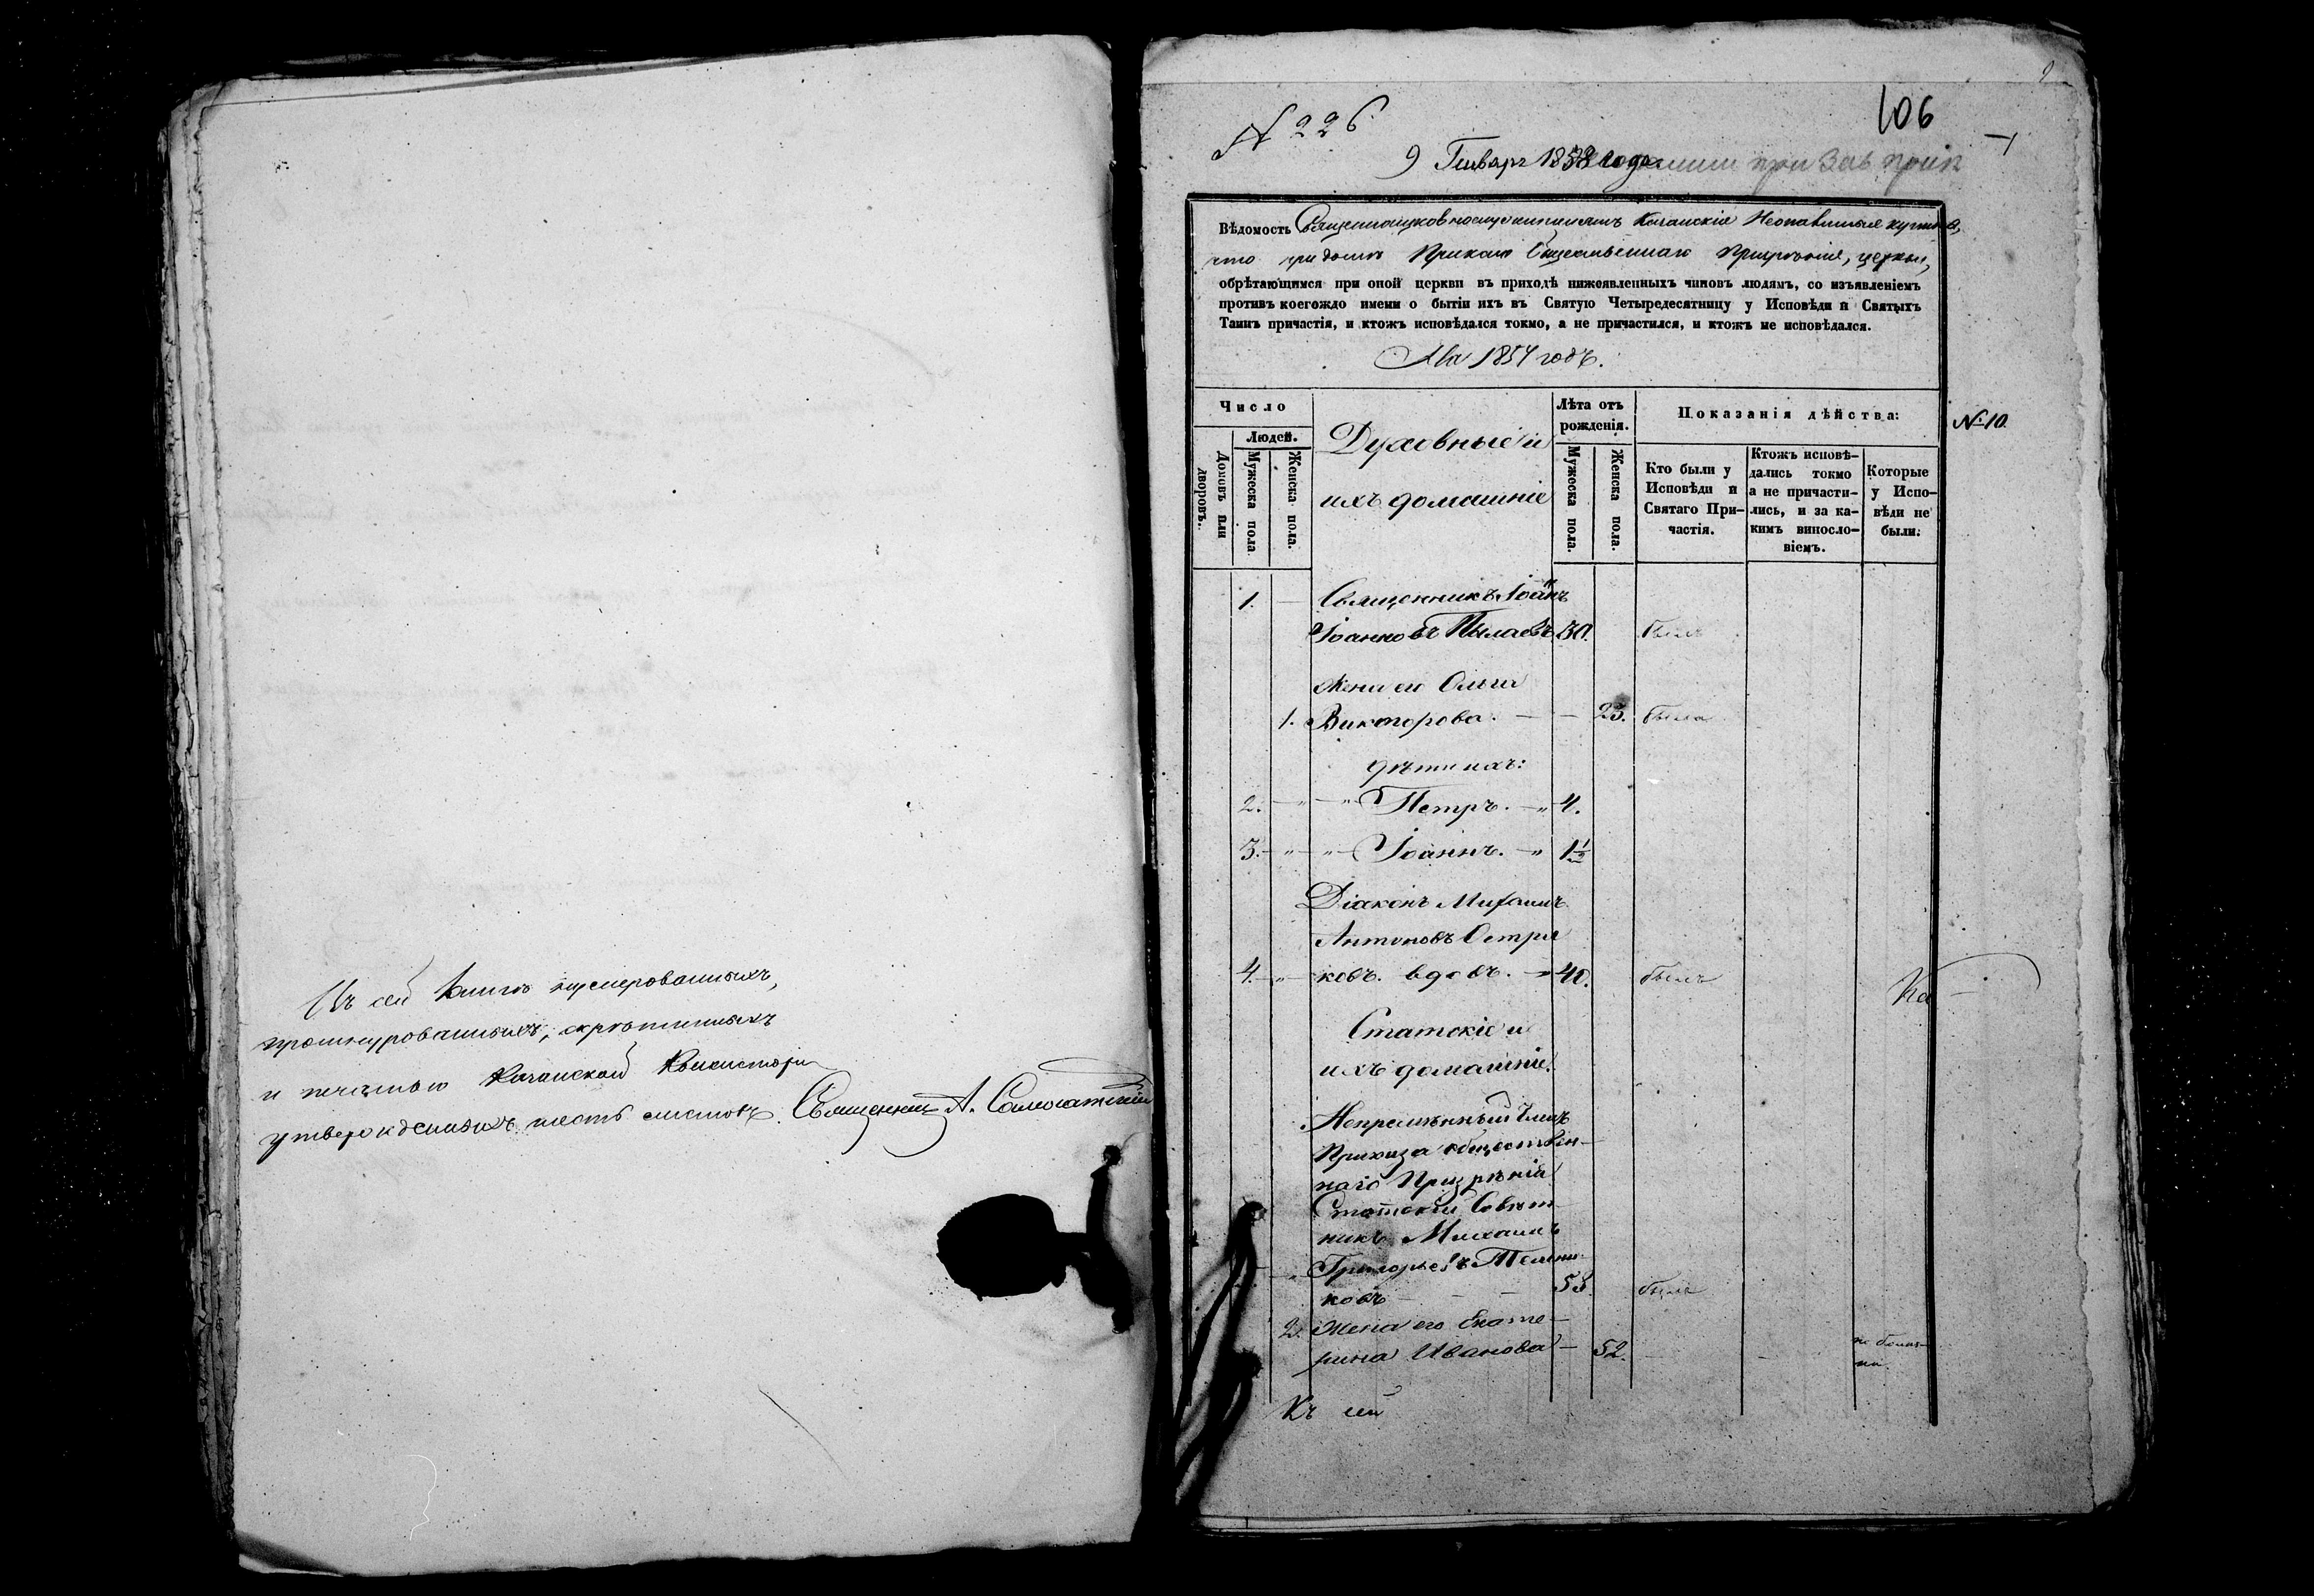 Въ сей книгѣ нумерованныхъ,
прошнурованныхъ, скрѣпленныхъ
и печатью Казанской Консисторіи
утвержденныхъ шесть листовъ. Священникъ А.
№ 226
106
9 Генваря 1858 года
Вѣдомость Казанскія
что при домѣ Приказа Общественнаго Призрѣнія, церкви,
обрѣтающимся при оной церкви въ приходѣ нижеявленныхъ чиновъ людямъ, со изъявленіемъ
противъ коегождо имени о бытіи ихъ въ Святую Четыредесятницу у Исповѣди и Святыхъ
Таинъ причастія, и ктожъ исповѣдался токмо, а не причастился, и ктожъ не исповѣдался.
На 1857 годъ.
Число
Людей.
Домовъ или дворовъ.
Мужеска пола.
Женска пола.
Духовные и
ихъ домашніе
Лѣта отъ
рожденія.
Мужеска пола.
Женска пола.
Показанія дѣйства:
Кто были у
Исповѣди и
Святаго При-
частія.
Ктожъ исповѣ-
дались токмо
а не причасти-
лись, и за ка-
кимъ виносло-
віемъ.
Которые
у Испо-
вѣди не
были.
№ 10.
1. Священникъ Іоаннъ
Іоанновъ Пылаевъ 30. былъ
Жена его Ольга
1. Викторова. — — 23. была
дѣти ихъ:
2. — " — " Петръ. — " 4.
3. — " — " Іоаннъ. — " 1½
Діаконъ Михаилъ
Антоновъ Остря
4. — " — ковъ. вдовъ. — " 40. былъ
Ка
Статскіе и
ихъ домашніе.
Непремѣнный Членъ
Приказа общественн-
наго Призрѣнія
Статскій Совѣт-
никъ Михаилъ
Григорьевъ
ковъ — — — 53. былъ
2. Жена его Екате-
рина Иванова — 52. — —
Къ сей